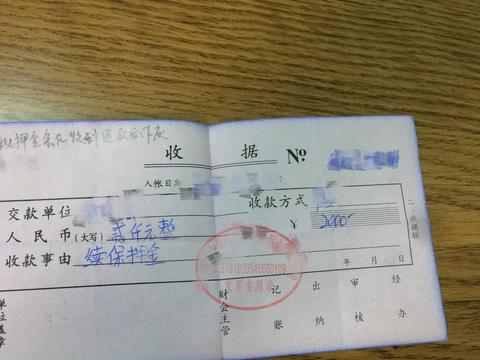 押金条凡收到退款后作废
收 据 No
入帐日期
交款单位 收款方式
人民币(大写) 贰仟元整 ¥ 2000
收款事由 续保押金
年 月 日
二收据联
发票专用章
单位盖章
财会主管 记账 出纳 审核 经办